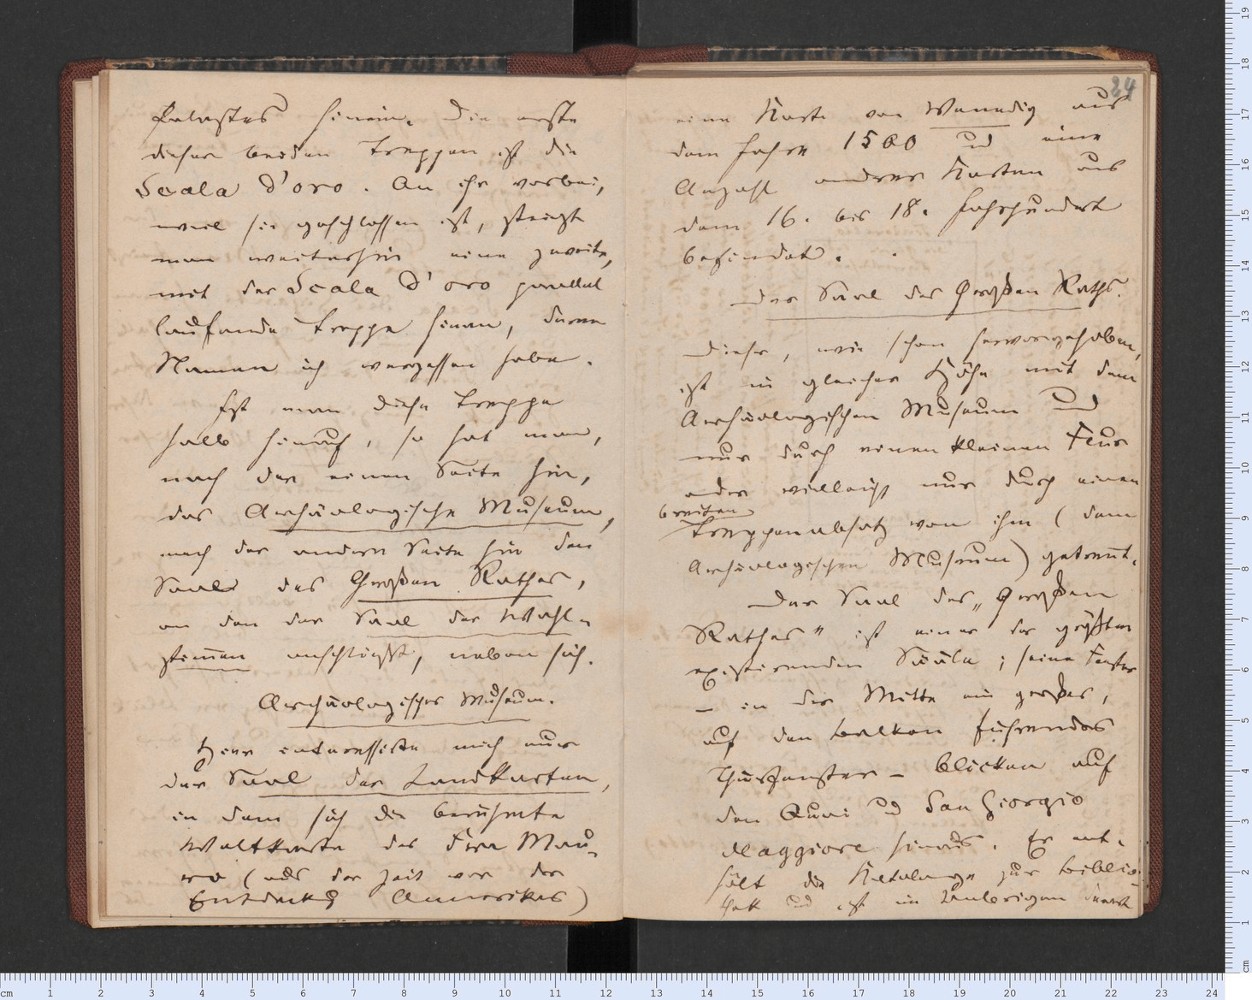 Palastes hinein. Die erste
dieser beiden Treppen ist die
Scala d'oro. An ihr vorbei,
weil sie geschlossen ist, steigt
man weiterhin eine zweite,
mit der Scala d'oro parallel
laufende Treppe hinan, deren
Namen ich vergessen habe.
Ist man diese Treppe
halb hinauf, so hat man,
nach der einen Seite hin,
das Archäologische Museum,
nach der andern Seite hin den
Saal des Großen Rathes,
an den der Saal der Wahl-
stimmen anschließt, neben sich.
Archäologisches Museum.
Hier interessirte mich nur
der Saal der Landkarten,
in dem sich die berühmte
Weltkarte des Fra Mau-
ro (aus der Zeit vor der
Entdeckg Amerikas)
24
eine Karte von Venedig aus
dem Jahre 1500 und eine
Anzahl andrer Karten aus
dem 16. bis 18. Jahrhundert
befindet.
Der Saal des Großen Raths.
Dieser, wie schon hervorgehoben,
ist in gleicher Höhe mit dem
Archäologischen Museum und
nur durch einen kleinen Flur
oder vielleicht nur durch einen
breiten
Treppenabsatz von ihm (dem
Archäologischen Museum) getrennt.
Der Saal des „Großen
Rathes" ist einer der größten
existirenden Säle; seine Fenster
– in der Mitte ein großes,
auf den Balkon führendes
Thürfenster – blicken auf
den Quai und San Giorgio
Maggiore hinaus. Er ent-
hält die Kataloge zur Biblio-
thek und ist im Uebrigen